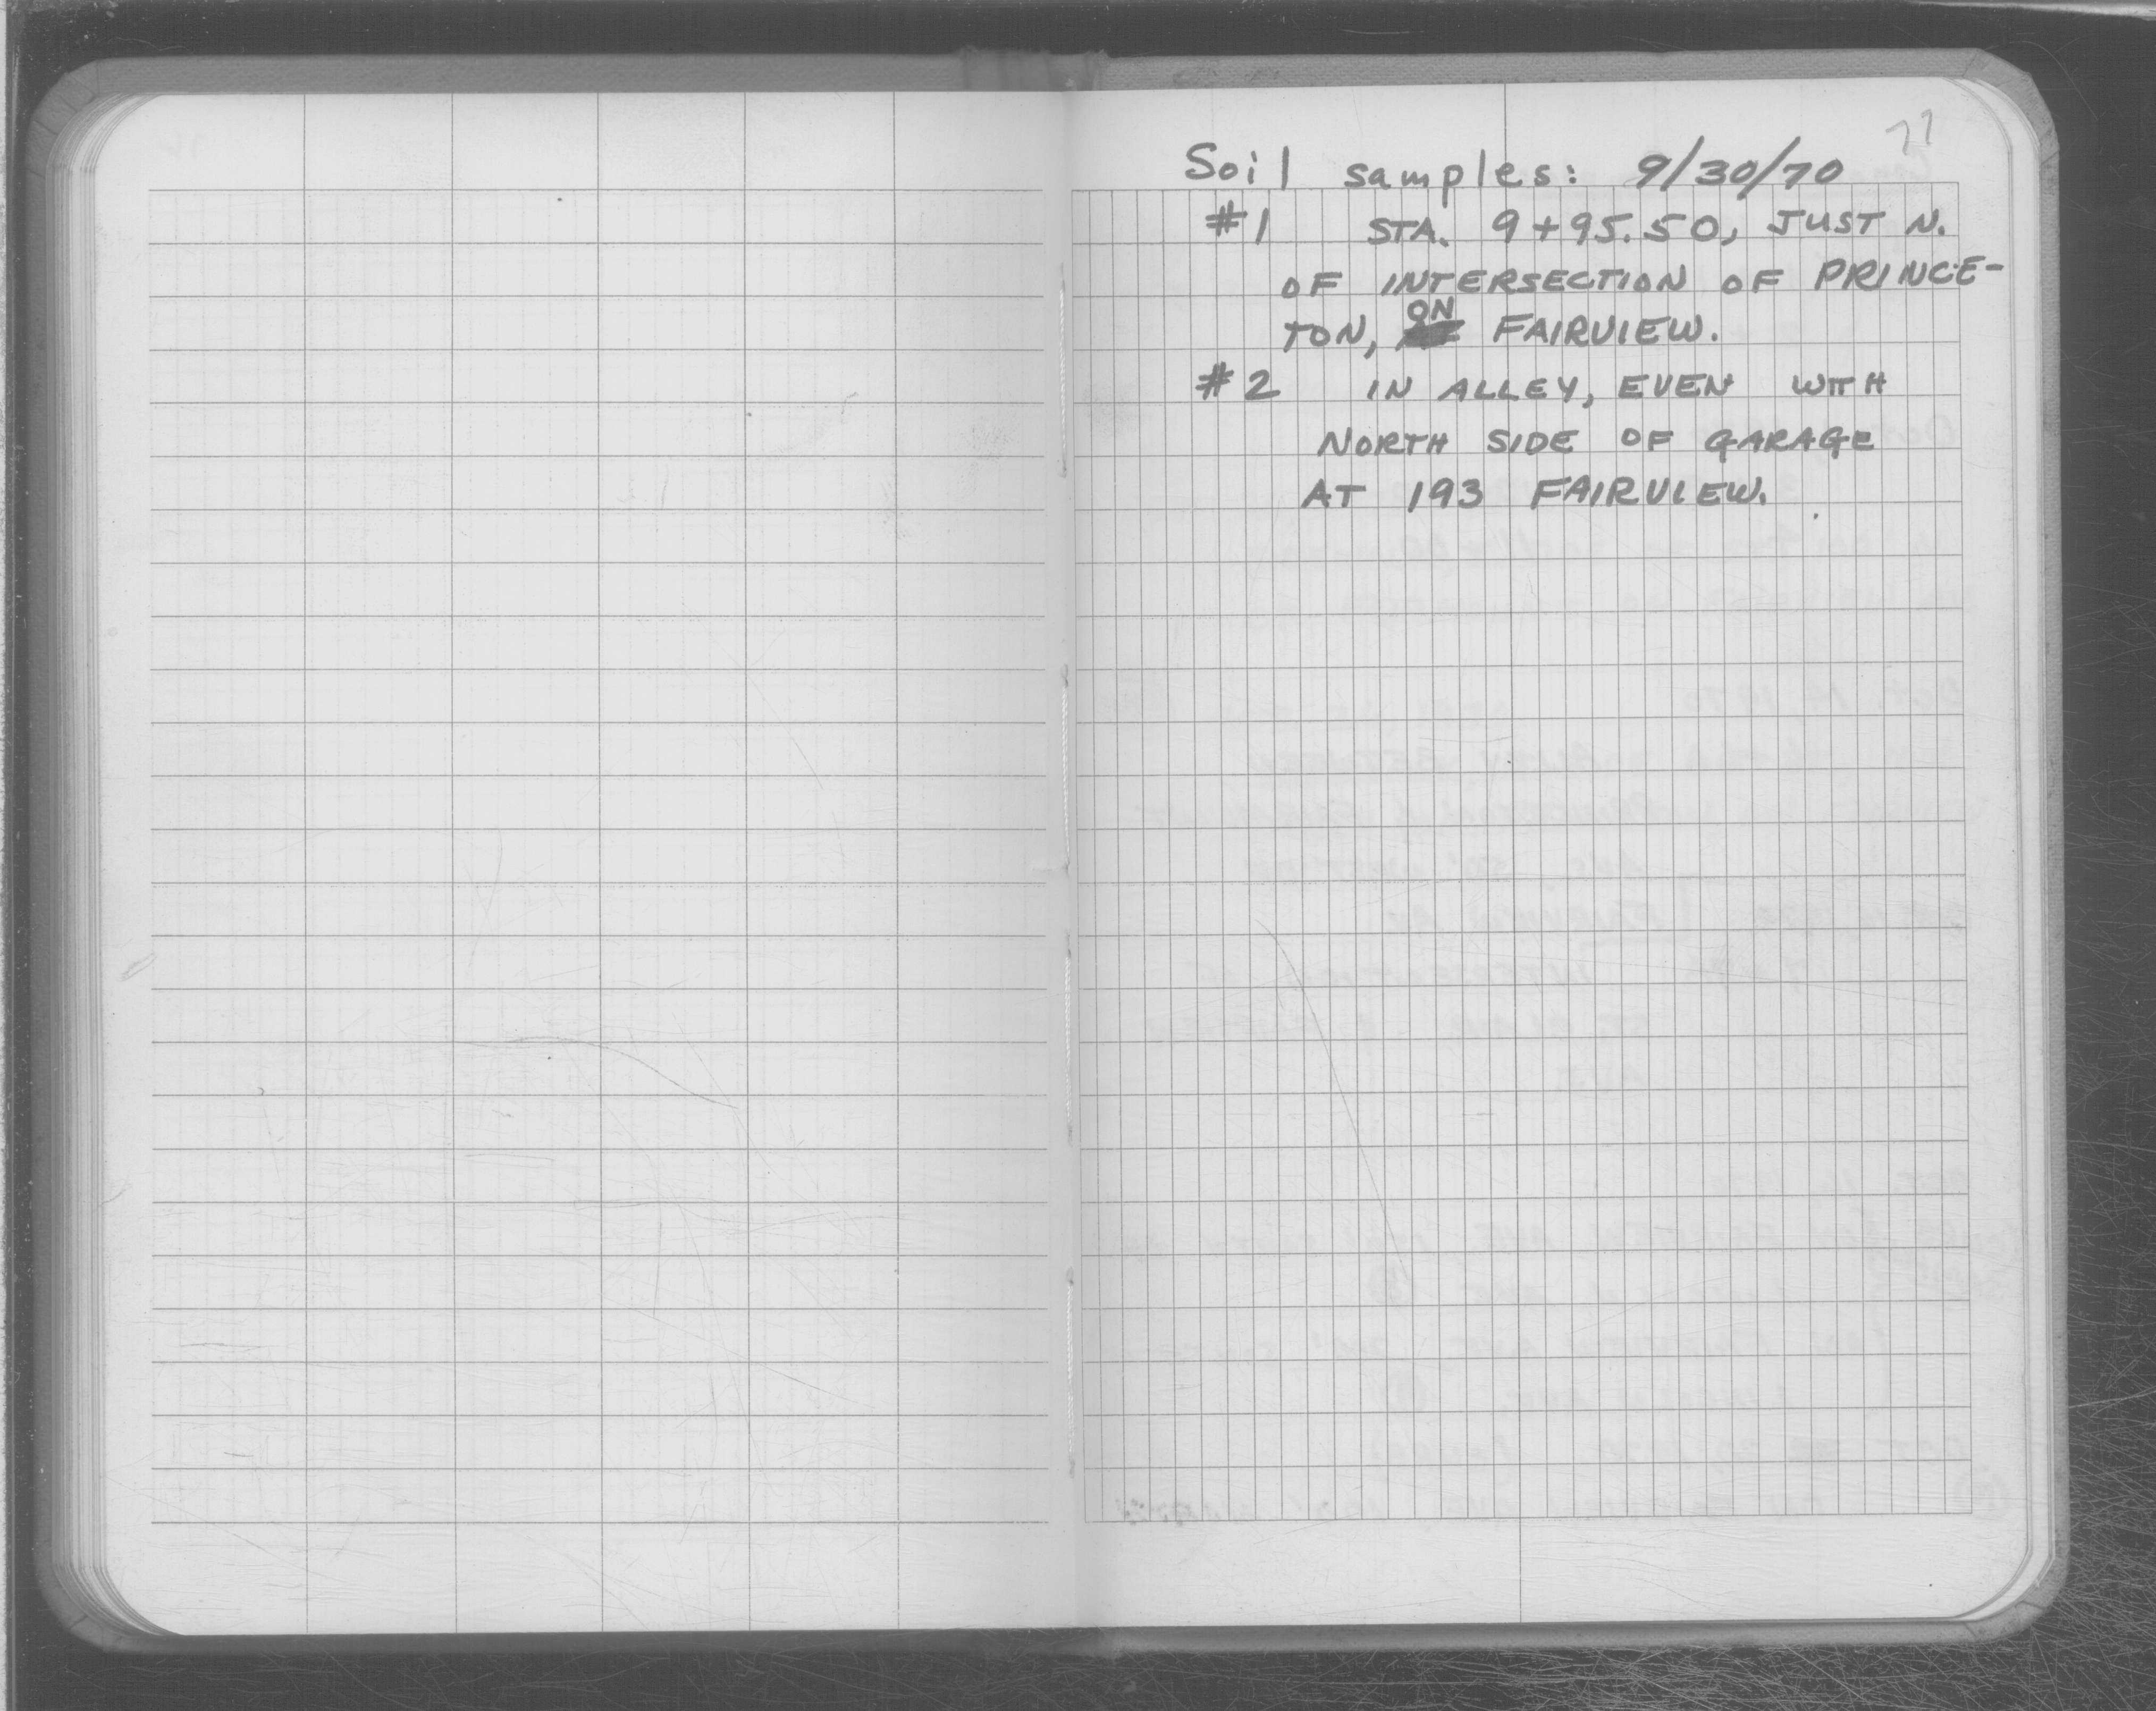 77
Soil samples: 9/30/70
#1 STA. 9+95.50, JUST N.
OF INTERSECTION OF PRINCE-
TON, ON FAIRVIEW.
#2 IN ALLEY, EVEN WITH
NORTH SIDE OF GARAGE
AT 193 FAIRVIEW.